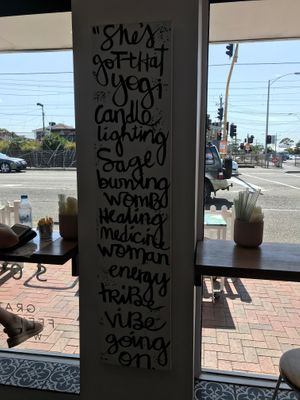 "She's
got that
yogi
candle
lighting
sage
burning
womb
healing
medicine
woman
energy
tribe
vibe
going
on.